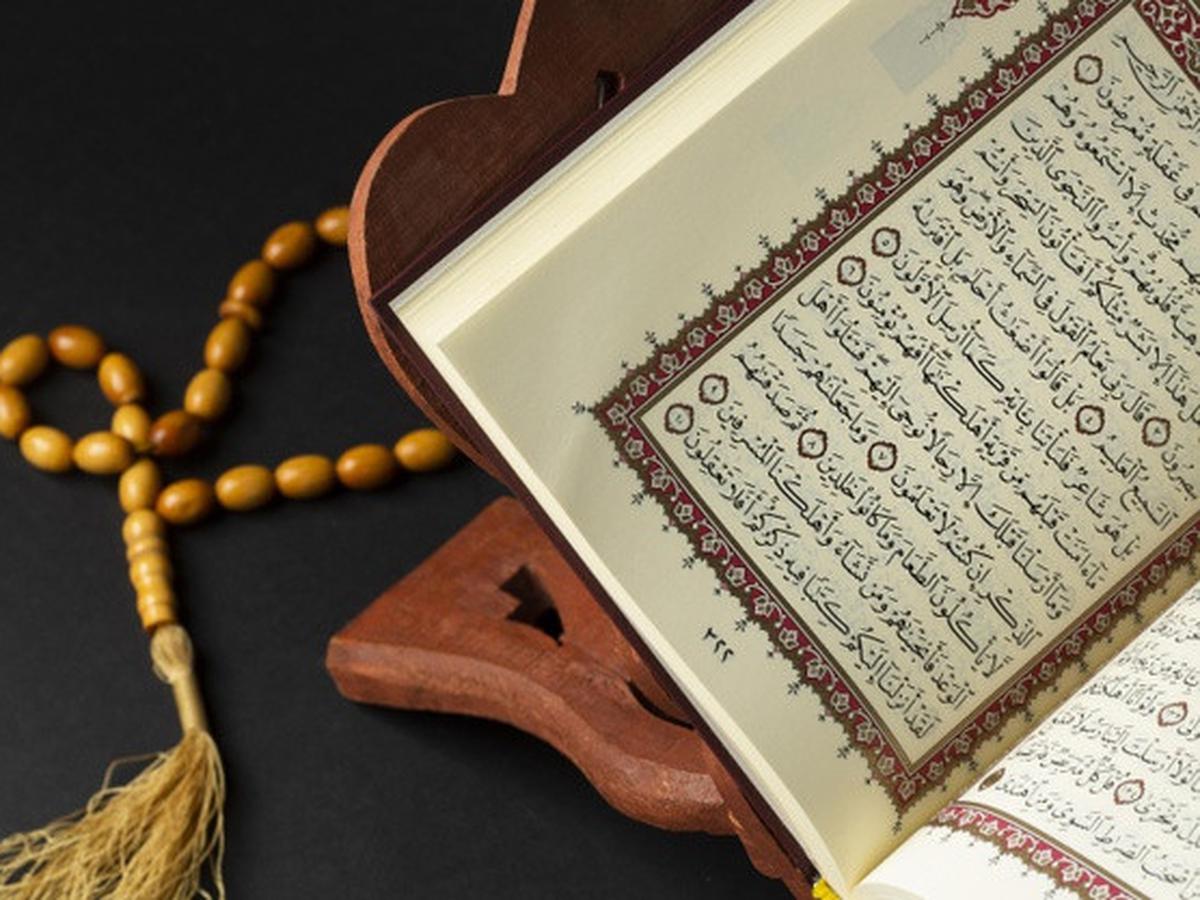 الرَّحْمَٰنِ الرَّحِيمِ
فِي غَفْلَةٍ مُّعْرِضُونَ ١
مُّحْدَثٍ إِلَّا اسْتَمَعُوهُ وَهُمْ
قُلُوبُهُمْ وَأَسَرُّوا النَّجْوَى الَّذِينَ
هَلْ هَٰذَا إِلَّا بَشَرٌ مِّثْلُكُمْ أَفَتَأْتُونَ السِّحْرَ وَأَنتُمْ
٣ قَالَ رَبِّي يَعْلَمُ الْقَوْلَ فِي السَّمَاءِ وَالْأَرْضِ وَهُوَ
السَّمِيعُ الْعَلِيمُ ٤ بَلْ قَالُوا أَضْغَاثُ أَحْلَامٍ بَلِ افْتَرَاهُ
بَلْ هُوَ شَاعِرٌ فَلْيَأْتِنَا بِآيَةٍ كَمَا أُرْسِلَ الْأَوَّلُونَ ٥
مَا آمَنَتْ قَبْلَهُم مِّن قَرْيَةٍ أَهْلَكْنَاهَا أَفَهُمْ يُؤْمِنُونَ ٦
وَمَا أَرْسَلْنَا قَبْلَكَ إِلَّا رِجَالًا نُّوحِي إِلَيْهِمْ فَسْـَٔلُوا أَهْلَ
الذِّكْرِ إِن كُنتُمْ لَا تَعْلَمُونَ ٧ وَمَا جَعَلْنَاهُمْ جَسَدًا
لَّا يَأْكُلُونَ الطَّعَامَ وَمَا كَانُوا خَالِدِينَ ٨ ثُمَّ صَدَقْنَاهُمُ
الْوَعْدَ فَأَنجَيْنَاهُمْ وَمَن نَّشَاءُ وَأَهْلَكْنَا الْمُسْرِفِينَ ٩
لَقَدْ أَنزَلْنَا إِلَيْكُمْ كِتَابًا فِيهِ ذِكْرُكُمْ أَفَلَا تَعْقِلُونَ ١٠
٣٢٢
لَوْلَا أَرْسَلْتَ إِلَيْنَا رَسُولًا فَنَتَّبِعَ
وَنَخْزَىٰ قُلْ كُلٌّ مُّتَرَبِّصٌ فَتَرَبَّصُوا
أَصْحَابُ الصِّرَاطِ السَّوِيِّ وَمَنِ اهْتَدَىٰ